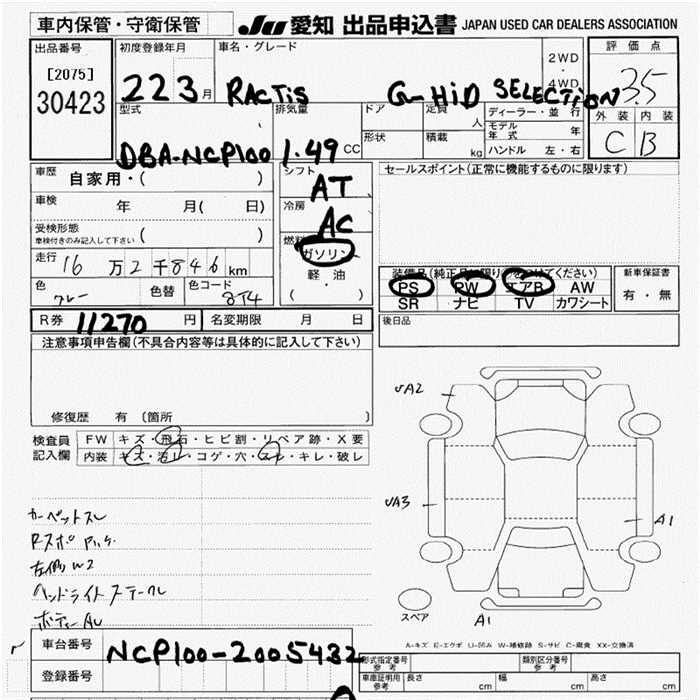 車内保管・守衛保管 JU 愛知 出品申込書 JAPAN USED CAR DEALERS ASSOCIATION
出品番号 初度登録年月 車名・グレード 2WD・4WD 評価点
[2075]
30423
22 3月 RACTIS G-HiD SELECTION 3.5
型式 排気量 ドア 定員 人 ディーラー・並行 外装 内装
形状 積載 kg モデル年式 年
ハンドル 左・右
DBA-NCP100 1.49 CC C B
車歴 自家用・( ) シフト AT セールスポイント(正常に機能するものに限ります)
車検 年 月( 日) 冷房 AC
受検形態 車検付きのみ記入して下さい ( ) 燃料 ガソリン
走行 16万2千846km 軽・油 ( )
色 グレー 色替 色コード 8T4
装備品(純正品に限り○をつけてください) 新車保証書
PS PW エアB AW 有・無
SR ナビ TV カワシート
R券 11270円 名変期限 月 日 後日品
注意事項申告欄(不具合内容等は具体的に記入して下さい)
修復歴 有 (箇所
検査員記入欄 FW キズ・飛石・ヒビ割・リペア跡・X要
内装 キズ・汚レ・コゲ・穴・スレ・キレ・破レ
UA2
UA3
A1
A1
スペア
カーペットスレ
左側W2
ボディーAU
A-キズ E-エクボ U-凹み W-補修跡 S-サビ C-腐食 XX-交換済
車台番号 NCP100-2005432
登録番号
形式指定番号 参考 類別区分番号 参考
車庫証明用 参考 長さ cm 幅 cm 高さ cm